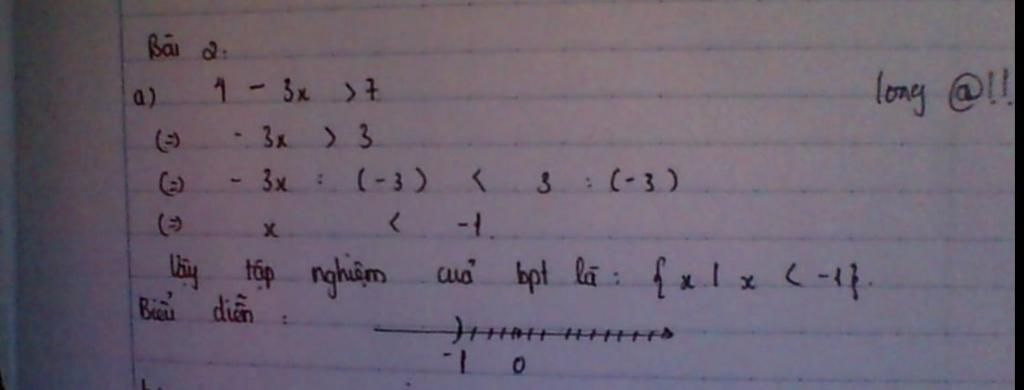 Bài 2:
a) 4 - 3x > 7
long @!!
(=) - 3x > 3
(=) - 3x : (-3) < 3 : (-3)
(=) x < -1.
Vậy tập nghiệm cuả bpt là : { x | x < -1}.
Biểu diễn :
-1 0